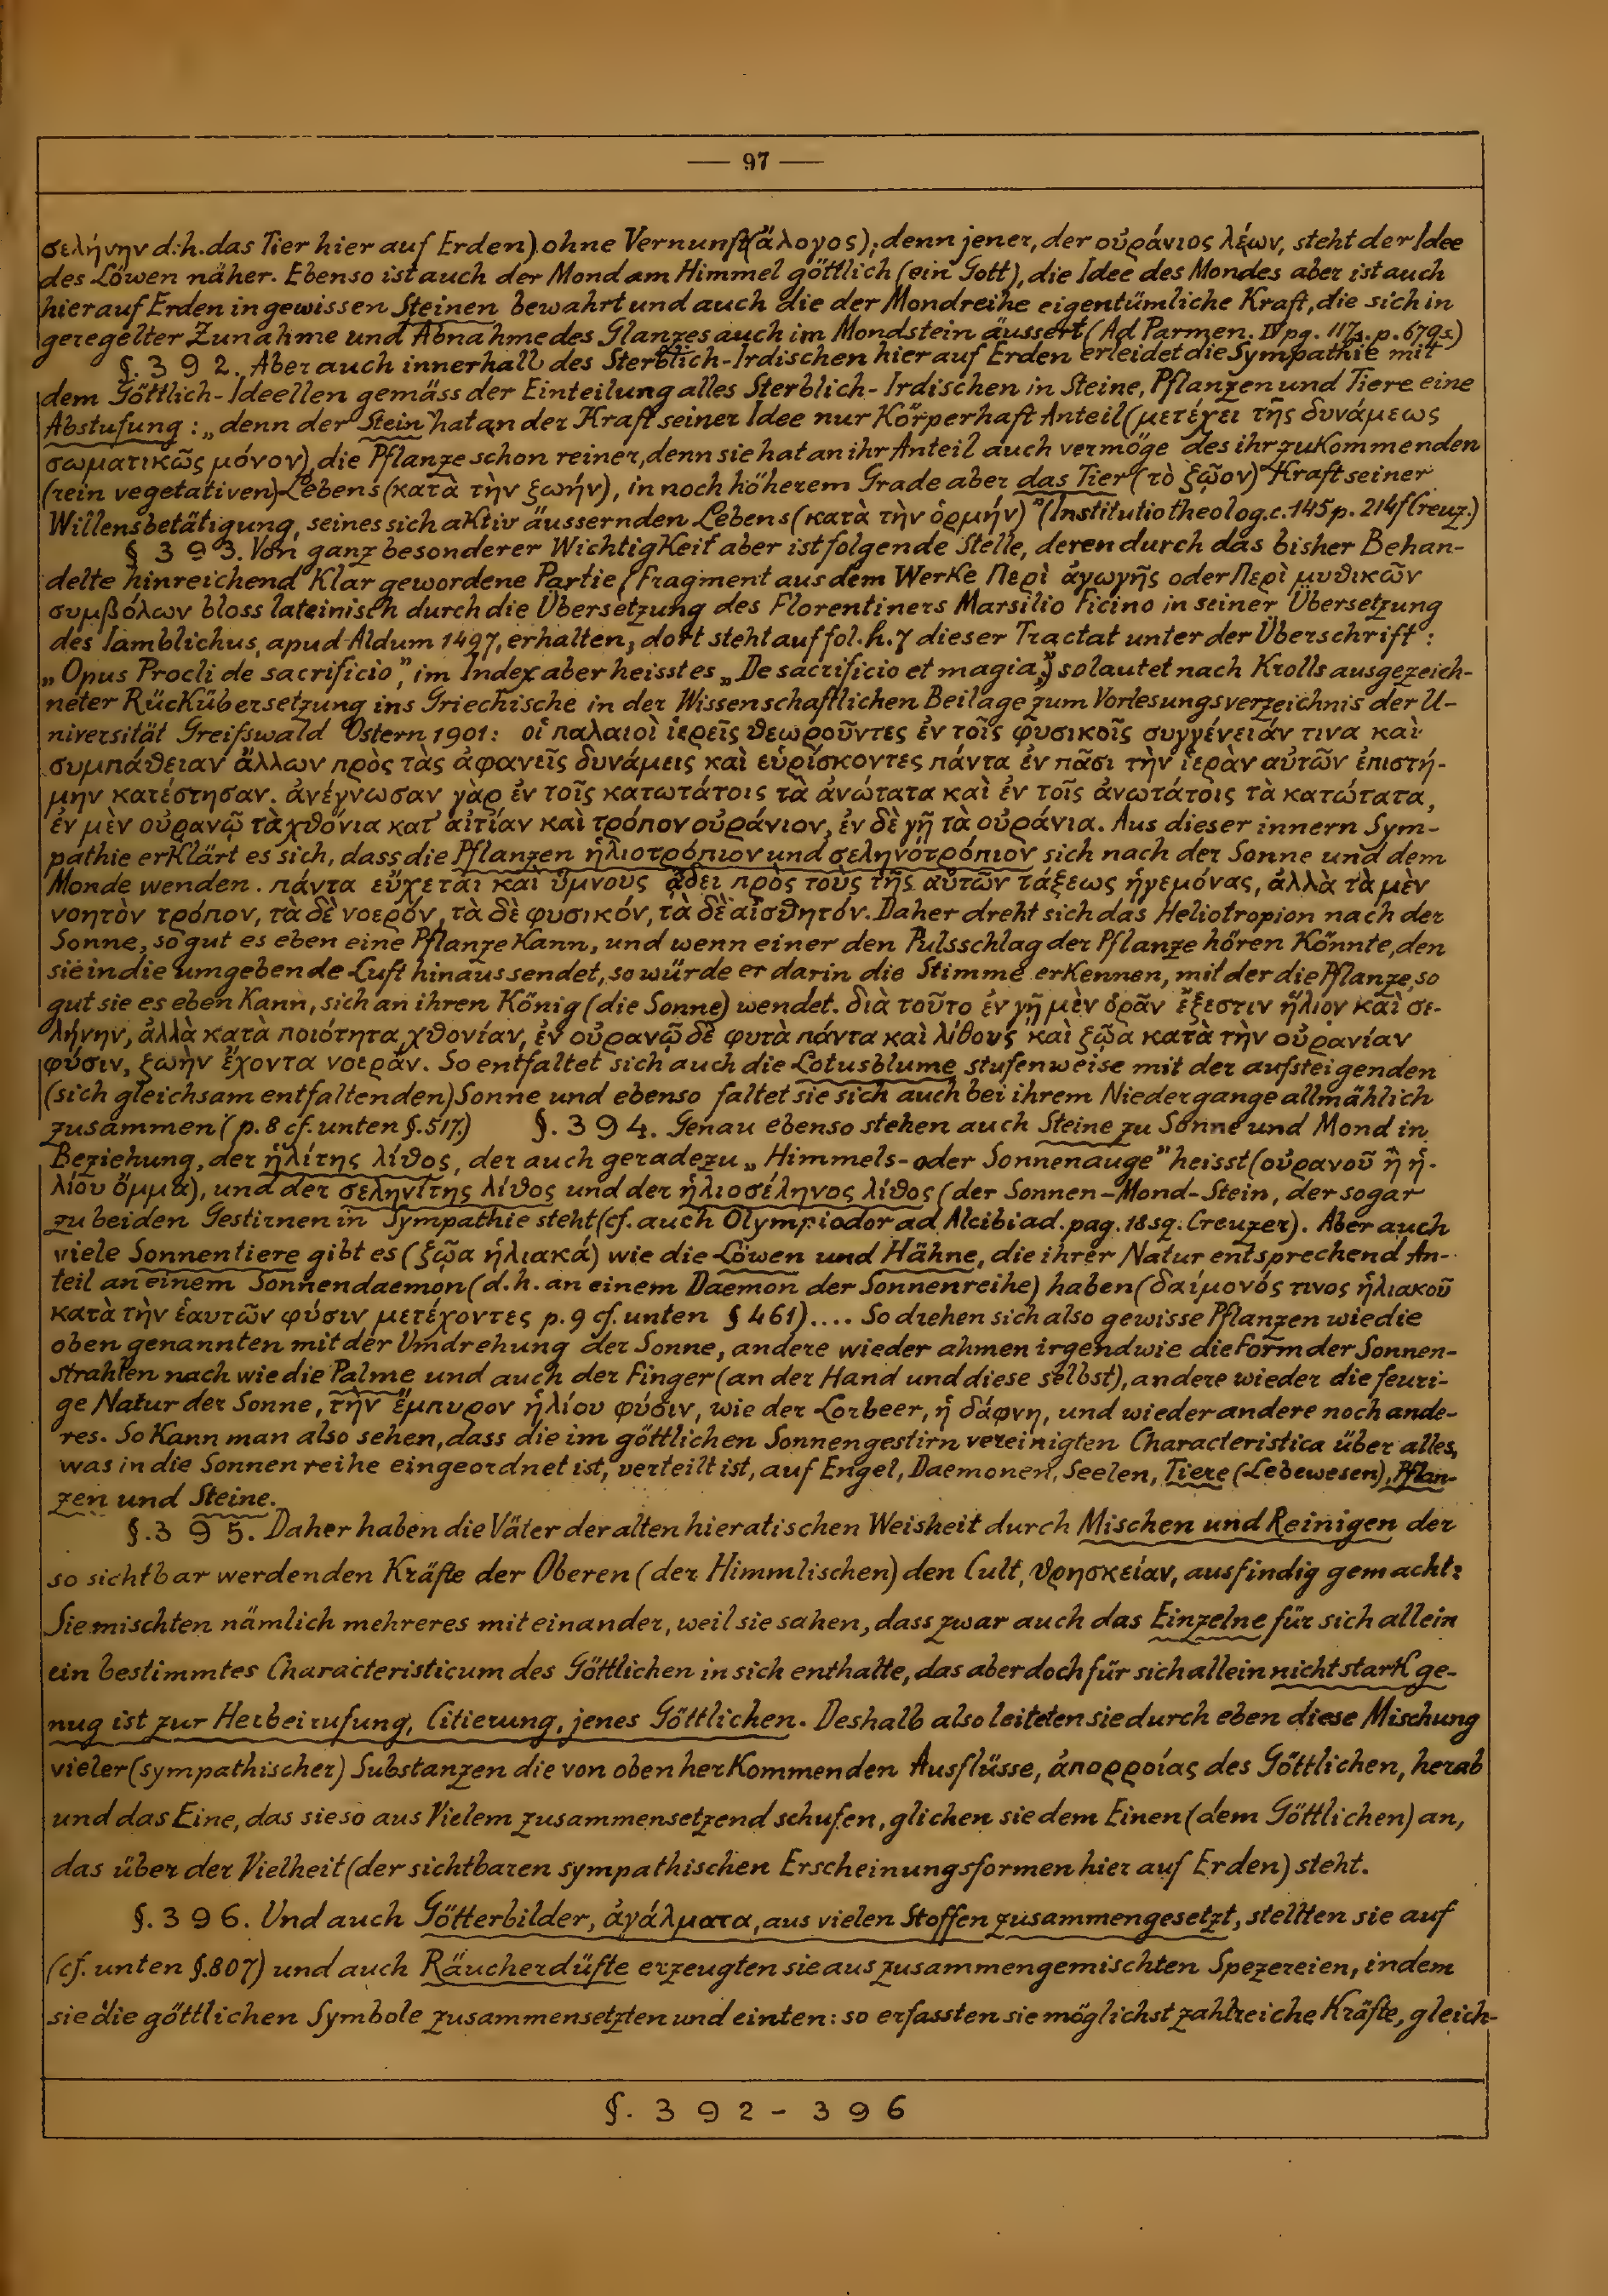 — 97 —
σελήνην d.h. das Tier hier auf Erden) ohne Vernunft (ἄλογος); denn jener, der οὐράνιος λέων, steht der Idee
des Löwen näher. Ebenso ist auch der Mond am Himmel göttlich (ein Gott), die Idee des Mondes aber ist auch
hier auf Erden in gewissen Steinen bewahrt und auch die der Mondreihe eigentümliche Kraft, die sich in
geregelter Zunahme und Abnahme des Glanzes auch im Mondstein äussert (Ad Parmen. IV pg. 117s. p. 679s.)
§. 3 9 2. Aber auch innerhalb des Sterblich-Irdischen hier auf Erden erleidet die Sympathie mit
dem Göttlich-Ideellen gemäss der Einteilung alles Sterblich-Irdischen in Steine, Pflanzen und Tiere eine
Abstufung: „denn der Stein hat an der Kraft seiner Idee nur Körperhaft Anteil (μετέχει τῆς δυνάμεως
σωματικῶς μόνον), die Pflanze schon reiner, denn sie hat an ihr Anteil auch vermöge des ihr zukommenden
(rein vegetativen) Lebens (κατὰ τὴν ζωήν), in noch höherem Grade aber das Tier (τὸ ζῷον) Kraft seiner
Willensbetätigung, seines sich aktiv äussernden Lebens (κατὰ τὴν ὁρμήν)" (Institutio theolog. c. 145 p. 214f Creuz.)
§ 3 9 3. Von ganz besonderer Wichtigkeit aber ist folgende Stelle, deren durch das bisher Behan-
delte hinreichend klar gewordene Partie (Fragment aus dem Werke Περὶ ἀγωγῆς oder Περὶ μυθικῶν
συμβόλων bloss lateinisch durch die Übersetzung des Florentiners Marsilio Ficino in seiner Übersetzung
des Iamblichus, apud Aldum 1497, erhalten, dort steht auf fol. h. 7 dieser Tractat unter der Überschrift:
„Opus Procli de sacrificio", im Index aber heisst es „De sacrificio et magia") so lautet nach Krolls ausgezeich-
neter Rückübersetzung ins Griechische in der Wissenschaftlichen Beilage zum Vorlesungsverzeichnis der U-
niversität Greifswald Ostern 1901: οἱ παλαιοὶ ἱερεῖς θεωροῦντες ἐν τοῖς φυσικοῖς συγγένειάν τινα καὶ
συμπάθειαν ἄλλων πρὸς τὰς ἀφανεῖς δυνάμεις καὶ εὑρίσκοντες πάντα ἐν πᾶσι τὴν ἱερὰν αὐτῶν ἐπιστή-
μην κατέστησαν. ἀνέγνωσαν γὰρ ἐν τοῖς κατωτάτοις τὰ ἀνώτατα καὶ ἐν τοῖς ἀνωτάτοις τὰ κατώτατα,
ἐν μὲν οὐρανῷ τὰ χθόνια κατ' αἰτίαν καὶ τρόπον οὐράνιον, ἐν δὲ γῇ τὰ οὐράνια. Aus dieser innern Sym-
pathie erklärt es sich, dass die Pflanzen ἡλιοτρόπιον und σεληνοτρόπιον sich nach der Sonne und dem
Monde wenden. πάντα εὔχεται καὶ ὕμνους ᾄδει πρὸς τοὺς τῆς αὐτῶν τάξεως ἡγεμόνας, ἀλλὰ τὰ μὲν
νοητὸν τρόπον, τὰ δὲ νοερόν, τὰ δὲ φυσικόν, τὰ δὲ αἰσθητόν. Daher dreht sich das Heliotropion nach der
Sonne, so gut es eben eine Pflanze kann, und wenn einer den Pulsschlag der Pflanze hören könnte, den
sie in die umgebende Luft hinaussendet, so würde er darin die Stimme erkennen, mit der die Pflanze, so
gut sie es eben kann, sich an ihren König (die Sonne) wendet. διὰ τοῦτο ἐν γῇ μὲν ὁρᾶν ἔξεστιν ἥλιον καὶ σε-
λήνην, ἀλλὰ κατὰ ποιότητα χθονίαν, ἐν οὐρανῷ δὲ φυτὰ πάντα καὶ λίθους καὶ ζῷα κατὰ τὴν οὐρανίαν
φύσιν, ζωὴν ἔχοντα νοεράν. So entfaltet sich auch die Lotusblume stufenweise mit der aufsteigenden
(sich gleichsam entfaltenden) Sonne und ebenso faltet sie sich auch bei ihrem Niedergange allmählich
zusammen (p. 8 cf. unten §. 517.) §. 3 9 4. Genau ebenso stehen auch Steine zu Sonne und Mond in
Beziehung, der ἡλίτης λίθος, der auch geradezu „Himmels- oder Sonnenauge" heisst (οὐρανοῦ ἢ ἡ-
λίου ὄμμα), und der σεληνίτης λίθος und der ἡλιοσέληνος λίθος (der Sonnen-Mond-Stein, der sogar
zu beiden Gestirnen in Sympathie steht (cf. auch Olympiodor ad Alcibiad. pag. 18 sq. Creuzer). Aber auch
viele Sonnentiere gibt es (ζῷα ἡλιακά) wie die Löwen und Hähne, die ihrer Natur entsprechend An-
teil an einem Sonnendaemon (d.h. an einem Daemon der Sonnenreihe) haben (δαίμονός τινος ἡλιακοῦ
κατὰ τὴν ἑαυτῶν φύσιν μετέχοντες p. 9 cf. unten § 461).... So drehen sich also gewisse Pflanzen wie die
oben genannten mit der Umdrehung der Sonne, andere wieder ahmen irgendwie die Form der Sonnen-
strahlen nach wie die Palme und auch der Finger (an der Hand und diese selbst), andere wieder die feuri-
ge Natur der Sonne, τὴν ἔμπυρον ἡλίου φύσιν, wie der Lorbeer, ἡ δάφνη, und wieder andere noch ande-
res. So kann man also sehen, dass die im göttlichen Sonnengestirn vereinigten Characteristica über alles,
was in die Sonnenreihe eingeordnet ist, verteilt ist, auf Engel, Daemonen, Seelen, Tiere (Lebewesen), Pflan-
zen und Steine.
§. 3 9 5. Daher haben die Väter der alten hieratischen Weisheit durch Mischen und Reinigen der
so sichtbar werdenden Kräfte der Oberen (der Himmlischen) den Cult, θρησκείαν, ausfindig gemacht:
Sie mischten nämlich mehreres miteinander, weil sie sahen, dass zwar auch das Einzelne für sich allein
ein bestimmtes Characteristicum des Göttlichen in sich enthalte, das aber doch für sich allein nicht stark ge-
nug ist zur Herbeirufung, Citierung, jenes Göttlichen. Deshalb also leiteten sie durch eben diese Mischung
vieler (sympathischer) Substanzen die von oben her kommenden Ausflüsse, ἀπορροίας des Göttlichen, herab
und das Eine, das sie so aus Vielem zusammensetzend schufen, glichen sie dem Einen (dem Göttlichen) an,
das über der Vielheit (der sichtbaren sympathischen Erscheinungsformen hier auf Erden) steht.
§. 3 9 6. Und auch Götterbilder, ἀγάλματα, aus vielen Stoffen zusammengesetzt, stellten sie auf
(cf. unten §. 807) und auch Räucherdüfte erzeugten sie aus zusammengemischten Spezereien, indem
sie die göttlichen Symbole zusammensetzten und einten: so erfassten sie möglichst zahlreiche Kräfte, gleich-
§. 3 9 2 - 3 9 6